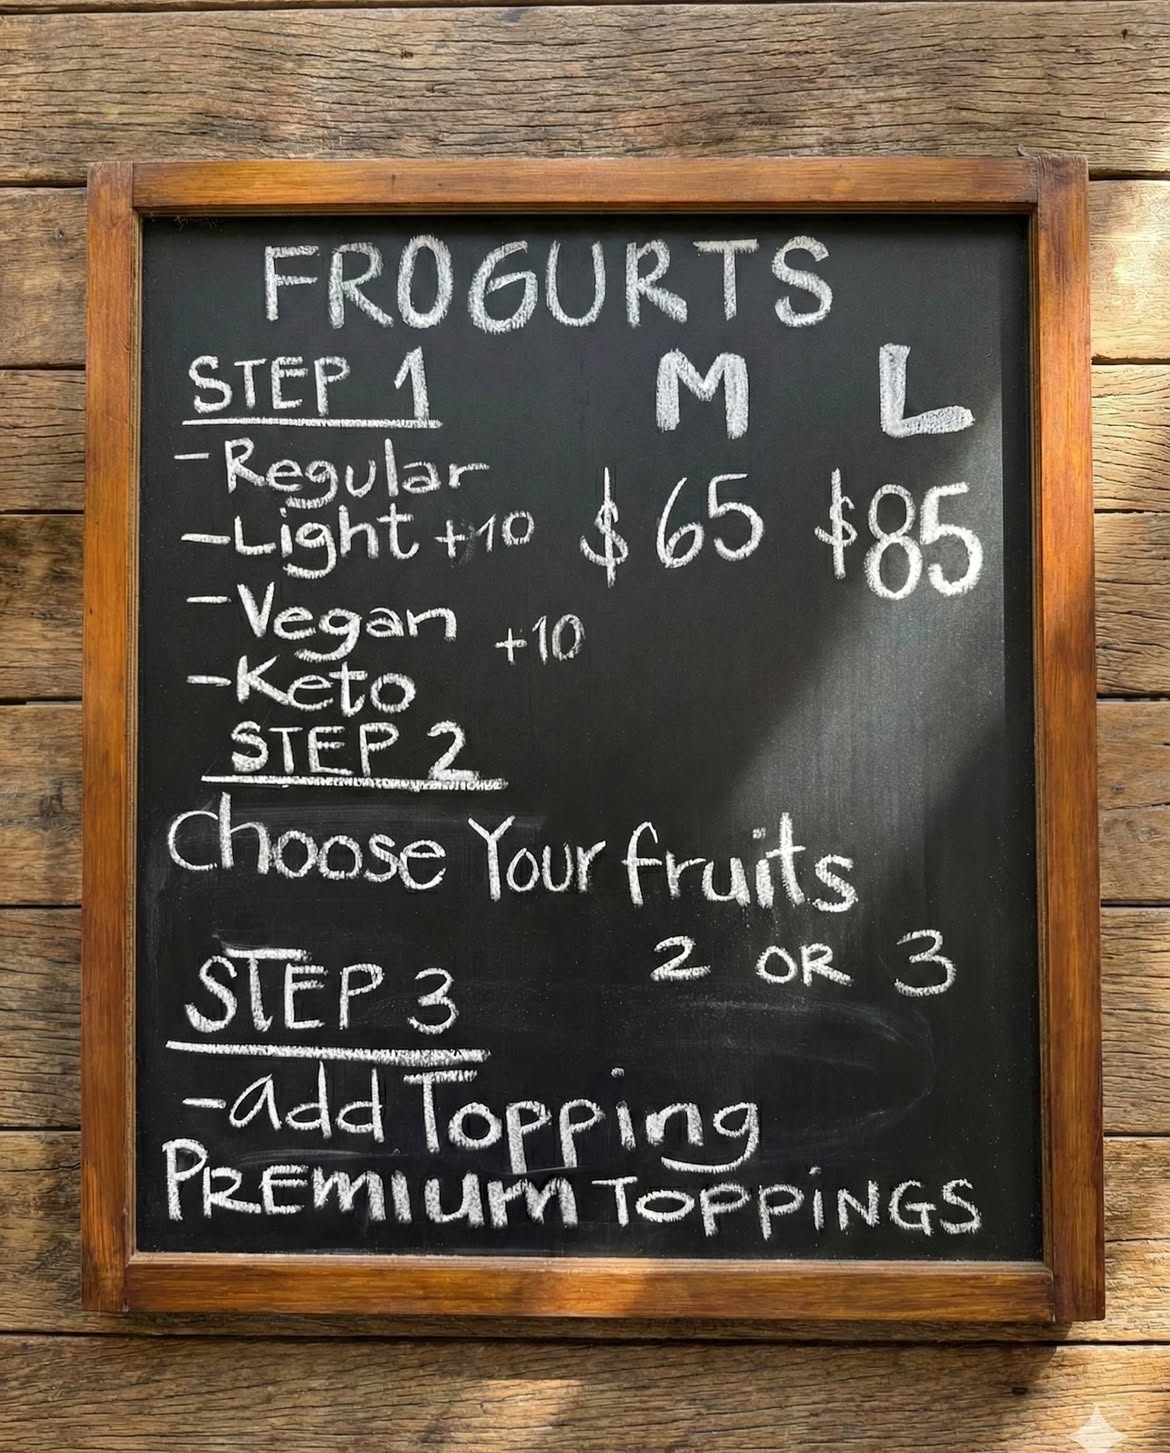 FROGURTS
STEP 1 M L
-Regular
-Light +10 $65 $85
-Vegan +10
-Keto
STEP 2
Choose Your fruits
2 OR 3
STEP 3
-add Topping
PREMIUM TOPPINGS